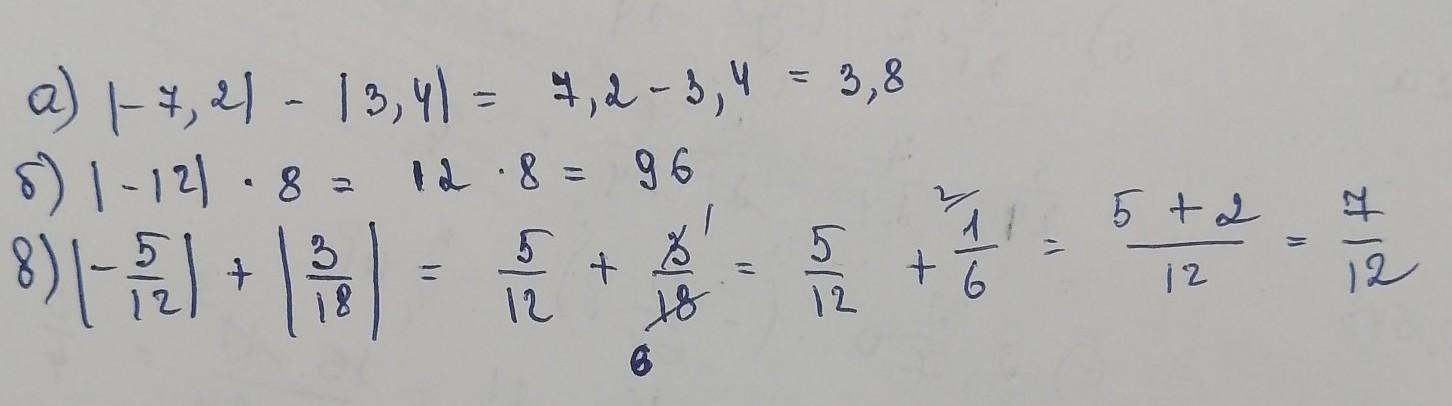 а) |-7,2| - |3,4| = 7,2 - 3,4 = 3,8
б) |-12| · 8 = 12 · 8 = 96
в) |-5/12| + |3/18| = 5/12 + 3/18 1 6 = 5/12 + 2 1/6 = 5 + 2/12 = 7/12